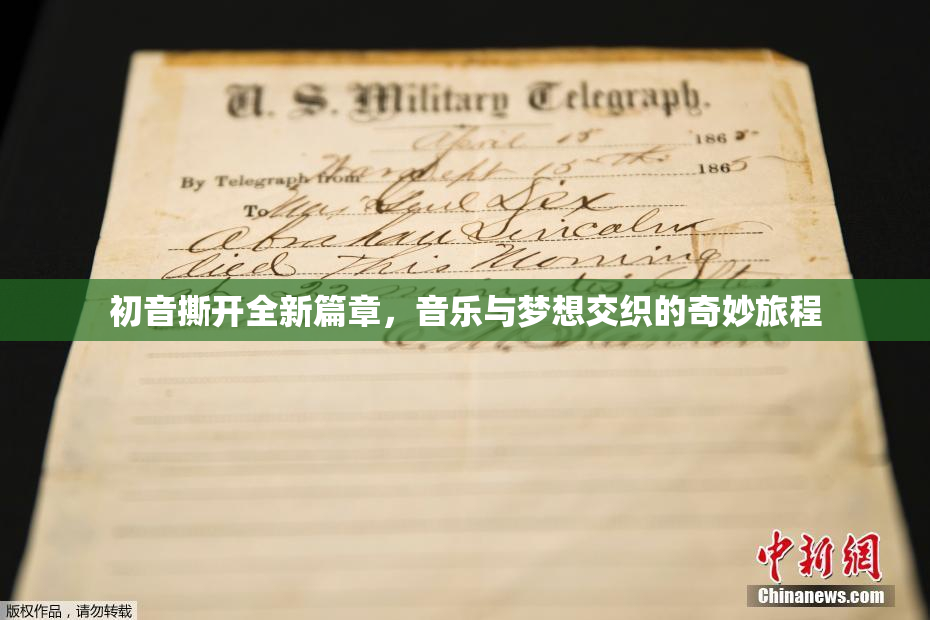 U. S. Military Telegraph.
April 15 1865
By Telegraph from War Dept 15th 1865
To Maj Genl Dix
Abraham Lincoln
died This Morning
22 minutes after
初音撕开全新篇章，音乐与梦想交织的奇妙旅程
中新網
Chinanews.com
版权作品，请勿转载